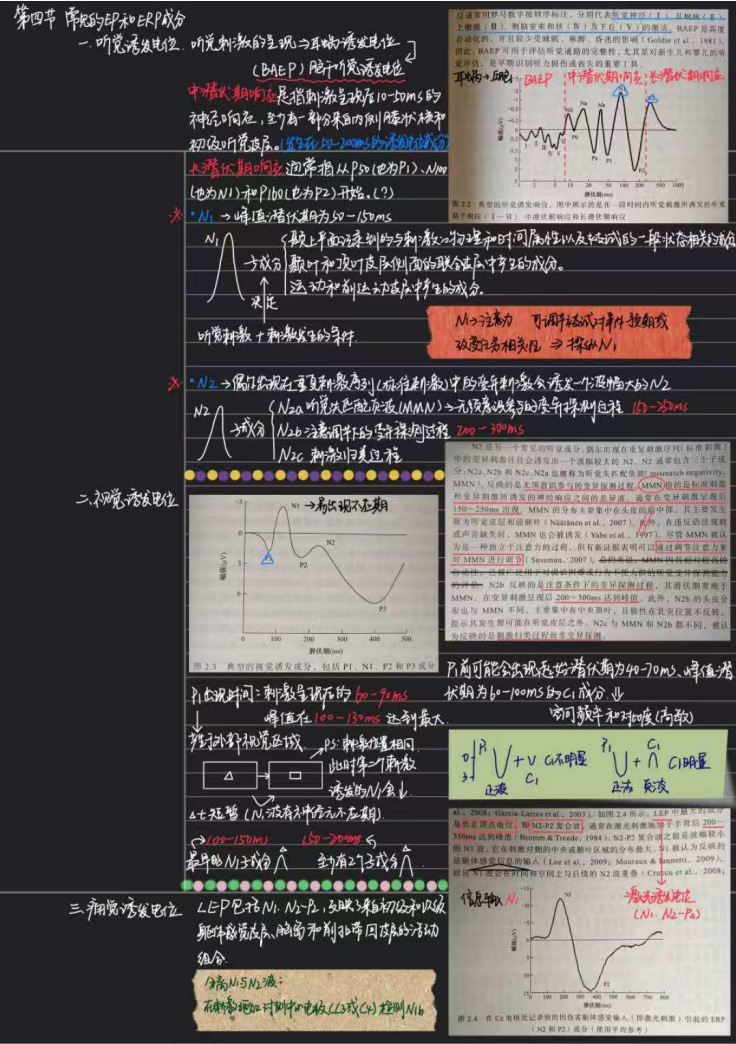 第四节 常见的EP和ERP成分
一.听觉诱发电位
听觉刺激的呈现⇒耳蜗诱发电位
(BAEP) 脑干听觉诱发电位
中潜伏期响应是指刺激呈现后10-50ms的
神经响应,至少有一部分来自内侧膝状核和
初级听觉皮层。(发生在50-200ms的诱发电位成分)
长潜伏期响应通常指从P50(也为P1)、N100
(也为N1)和P160(也为P2)开始。(?)
※ •N1 → 峰值潜伏期为50-150ms
N1
子成分
颞上平面记录到的与刺激的物理和时间属性以及被试的一般状态相关的成分
颞叶和顶叶皮层侧面的联合皮层中产生的成分。
运动和前运动皮层中产生的成分。
决定
听觉刺激+刺激发生的条件
N1→注意力 可调节被试对事件预期或
改变任务相关性 ⇒ 探纵N1
※ •N2 → 偶尔出现在重复刺激序列(标准刺激)中的变异刺激会诱发一个波幅大的N2
N2
子成分
N2a 听觉失匹配负波(MMN)→无须意识参与的变异探测过程 150-250ms
N2b 注意条件下的变异探测过程 200-300ms
N2c 刺激归类过程
反应常用罗马数字按顺序标注,分别代表听觉神经(Ⅰ)、耳蜗核(Ⅱ)、
上橄榄(Ⅲ)、侧脑室束和核(Ⅳ)及下丘(Ⅴ)的激活。BAEP是高度
自动化的,并且较少受睡眠、麻醉、昏迷的影响(Goldie et al., 1981)。
因此,BAEP可用于评估听觉通路的完整性,尤其是对新生儿和婴儿的听
觉评估,是早期识别听力损伤或丧失的重要工具。
耳蜗→丘脑→ BAEP 中潜伏期响应 长潜伏期响应
幅值(μV)
N0 Na Nb N1 N2
P0 Pa P1 P2
1 2 5 10 20 50 100 200 500 1000
潜伏期(ms)
图2.2 典型的听觉诱发响应。图中展示的是在一段时间内听觉刺激所诱发的听觉
脑干响应(Ⅰ—Ⅵ)、中潜伏期响应和长潜伏期响应
N2是另一个常见的听觉成分。偶尔出现在重复刺激序列(标准刺激)
中的变异刺激往往会诱发一个波幅较大的N2。N2通常包含三个子成
分:N2a、N2b和N2c。N2a也被称为听觉失匹配负波(mismatch negativity,
MMN),反映的是无须意识参与的变异探测过程。MMN指的是标准刺激
和变异刺激所诱发的神经响应之间的差异波,通常在变异刺激呈现后
150~250ms出现。MMN的分布主要集中在头皮的前中部,其主要发生
源为听觉皮层和前额叶(Näätänen et al., 2007)。此外,在违反语法规则
或声音缺失时,MMN也会被诱发(Yabe et al., 1997)。尽管MMN被认
为是一种独立于注意力的过程,但有新证据表明可以通过调节注意力来
对MMN进行调节(Sussman, 2007)。总的来说,MMN因其相对较高的
自动性,已被广泛用于对说话困难或行为不便人群的听觉变异探测能力
的评估。N2b反映的是注意条件下的变异探测过程,其潜伏期要晚于
MMN,在变异刺激呈现后200~300ms达到峰值。此外,N2b的头皮分
布也与MMN不同,主要集中在中央顶叶,且极性在乳突位置不反转,
提示其发生源可能在听觉皮层之外。N2c与MMN和N2b都不同,被认
为反映的是刺激归类过程而非变异探测。
二.视觉诱发电位
N1 →易出现不应期
N2
P1
P2
P3
幅值(μV)
-3
0
3
6
0 100 200 300 400 500
潜伏期(ms)
图2.3 典型的视觉诱发成分,包括P1、N1、P2和P3成分
P1出现时间:刺激呈现后的60-90ms
峰值在100-130ms达到最大.
纹外部视觉区域.
PS:刺激位置相同.
此时第二个刺激
诱发的N1会↓.
△t短暂 (N1波有神经元不应期)
100-150ms 150-200ms
最早的N1子成分 至少有2个子成分
P1前可能会出现起始潜伏期为40-70ms、峰值潜
伏期为60-100ms的C1成分.⇓
空间频率和对比度(高敏)
0
3
P1
正波
+
C1
C1不明显
P1
+
C1
C1明显
正波 负波
三.痛觉诱发电位
LEP包括N1、N2-P2,反映了来自初级和次级
躯体感觉皮层、脑岛和前扣带回皮层的活动
组合.
分离N1与N2波:
在刺激施加对侧中的电极(C3或C4)检测N1b
al., 2008; Garcia-Larrea et al., 2003)。如图2.4所示,LEP中最大的成分
是负正顶点电位,即N2-P2复合波,通常在激光刺激施加于手背后200~
350ms达到峰值(Bromm & Treede, 1984)。N2-P2复合波之前是波幅较小
的N1波,它在刺激对侧的中央或颞叶区域的分布最大。N1被认为反映的
是躯体感觉信息的输入(Lee et al., 2009; Mouraux & Iannetti, 2009),
而且N1波会在时间和空间上与后续的N2波重叠(Cruccu et al., 2008;
信息输入 N1
激光诱发电位
(N1、N2-P2)
N2
P2
幅值(μV)
-15
-10
-5
0
5
10
15
0 100 200 300 400 500 600 700 800
潜伏期(ms)
图2.4 在Cz电极处记录到的因伤害躯体感觉输入(即激光刺激)引起的ERP
(N2和P2)成分(使用平均参考)